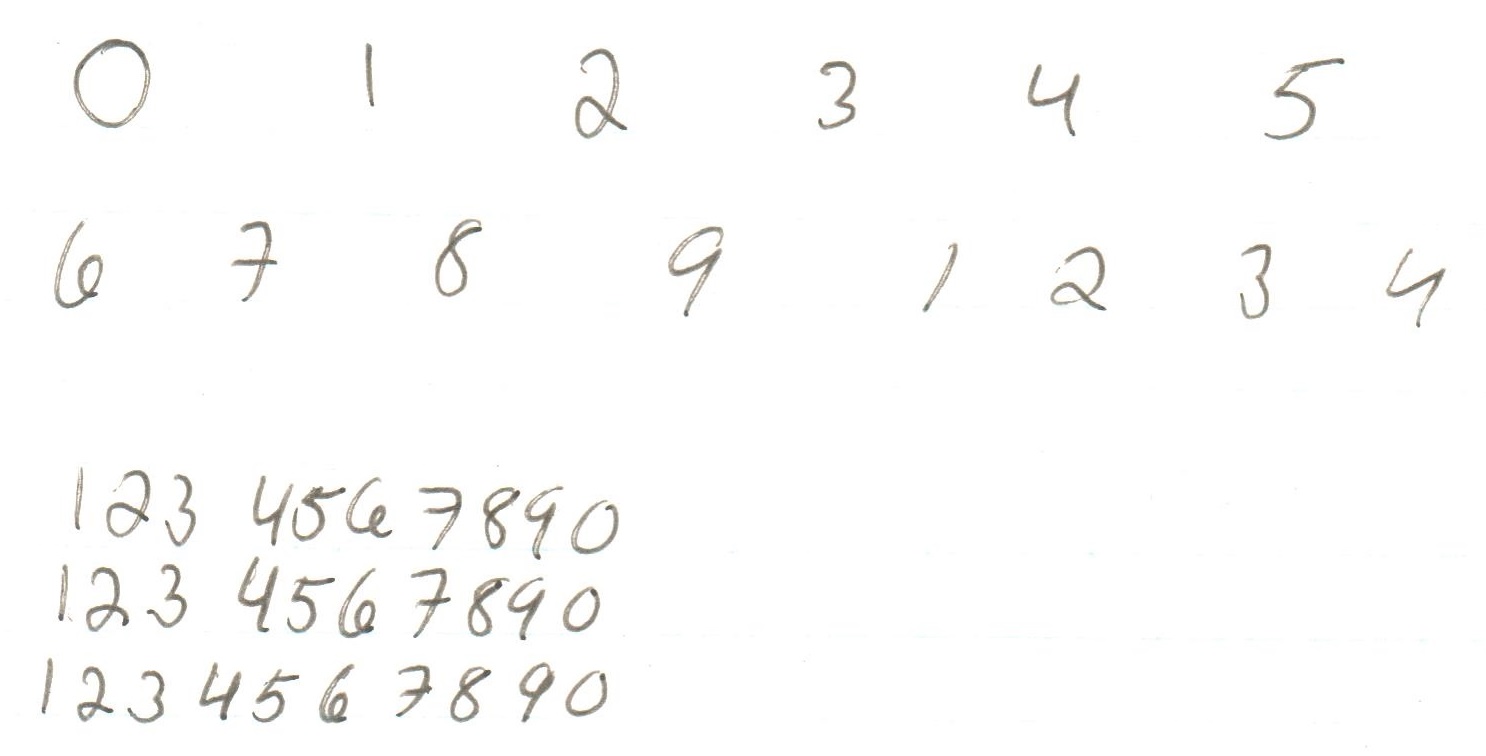 0 1 2 3 4 5
6 7 8 9 1 2 3 4
123 456 7890
123 456 7890
123 456 7890